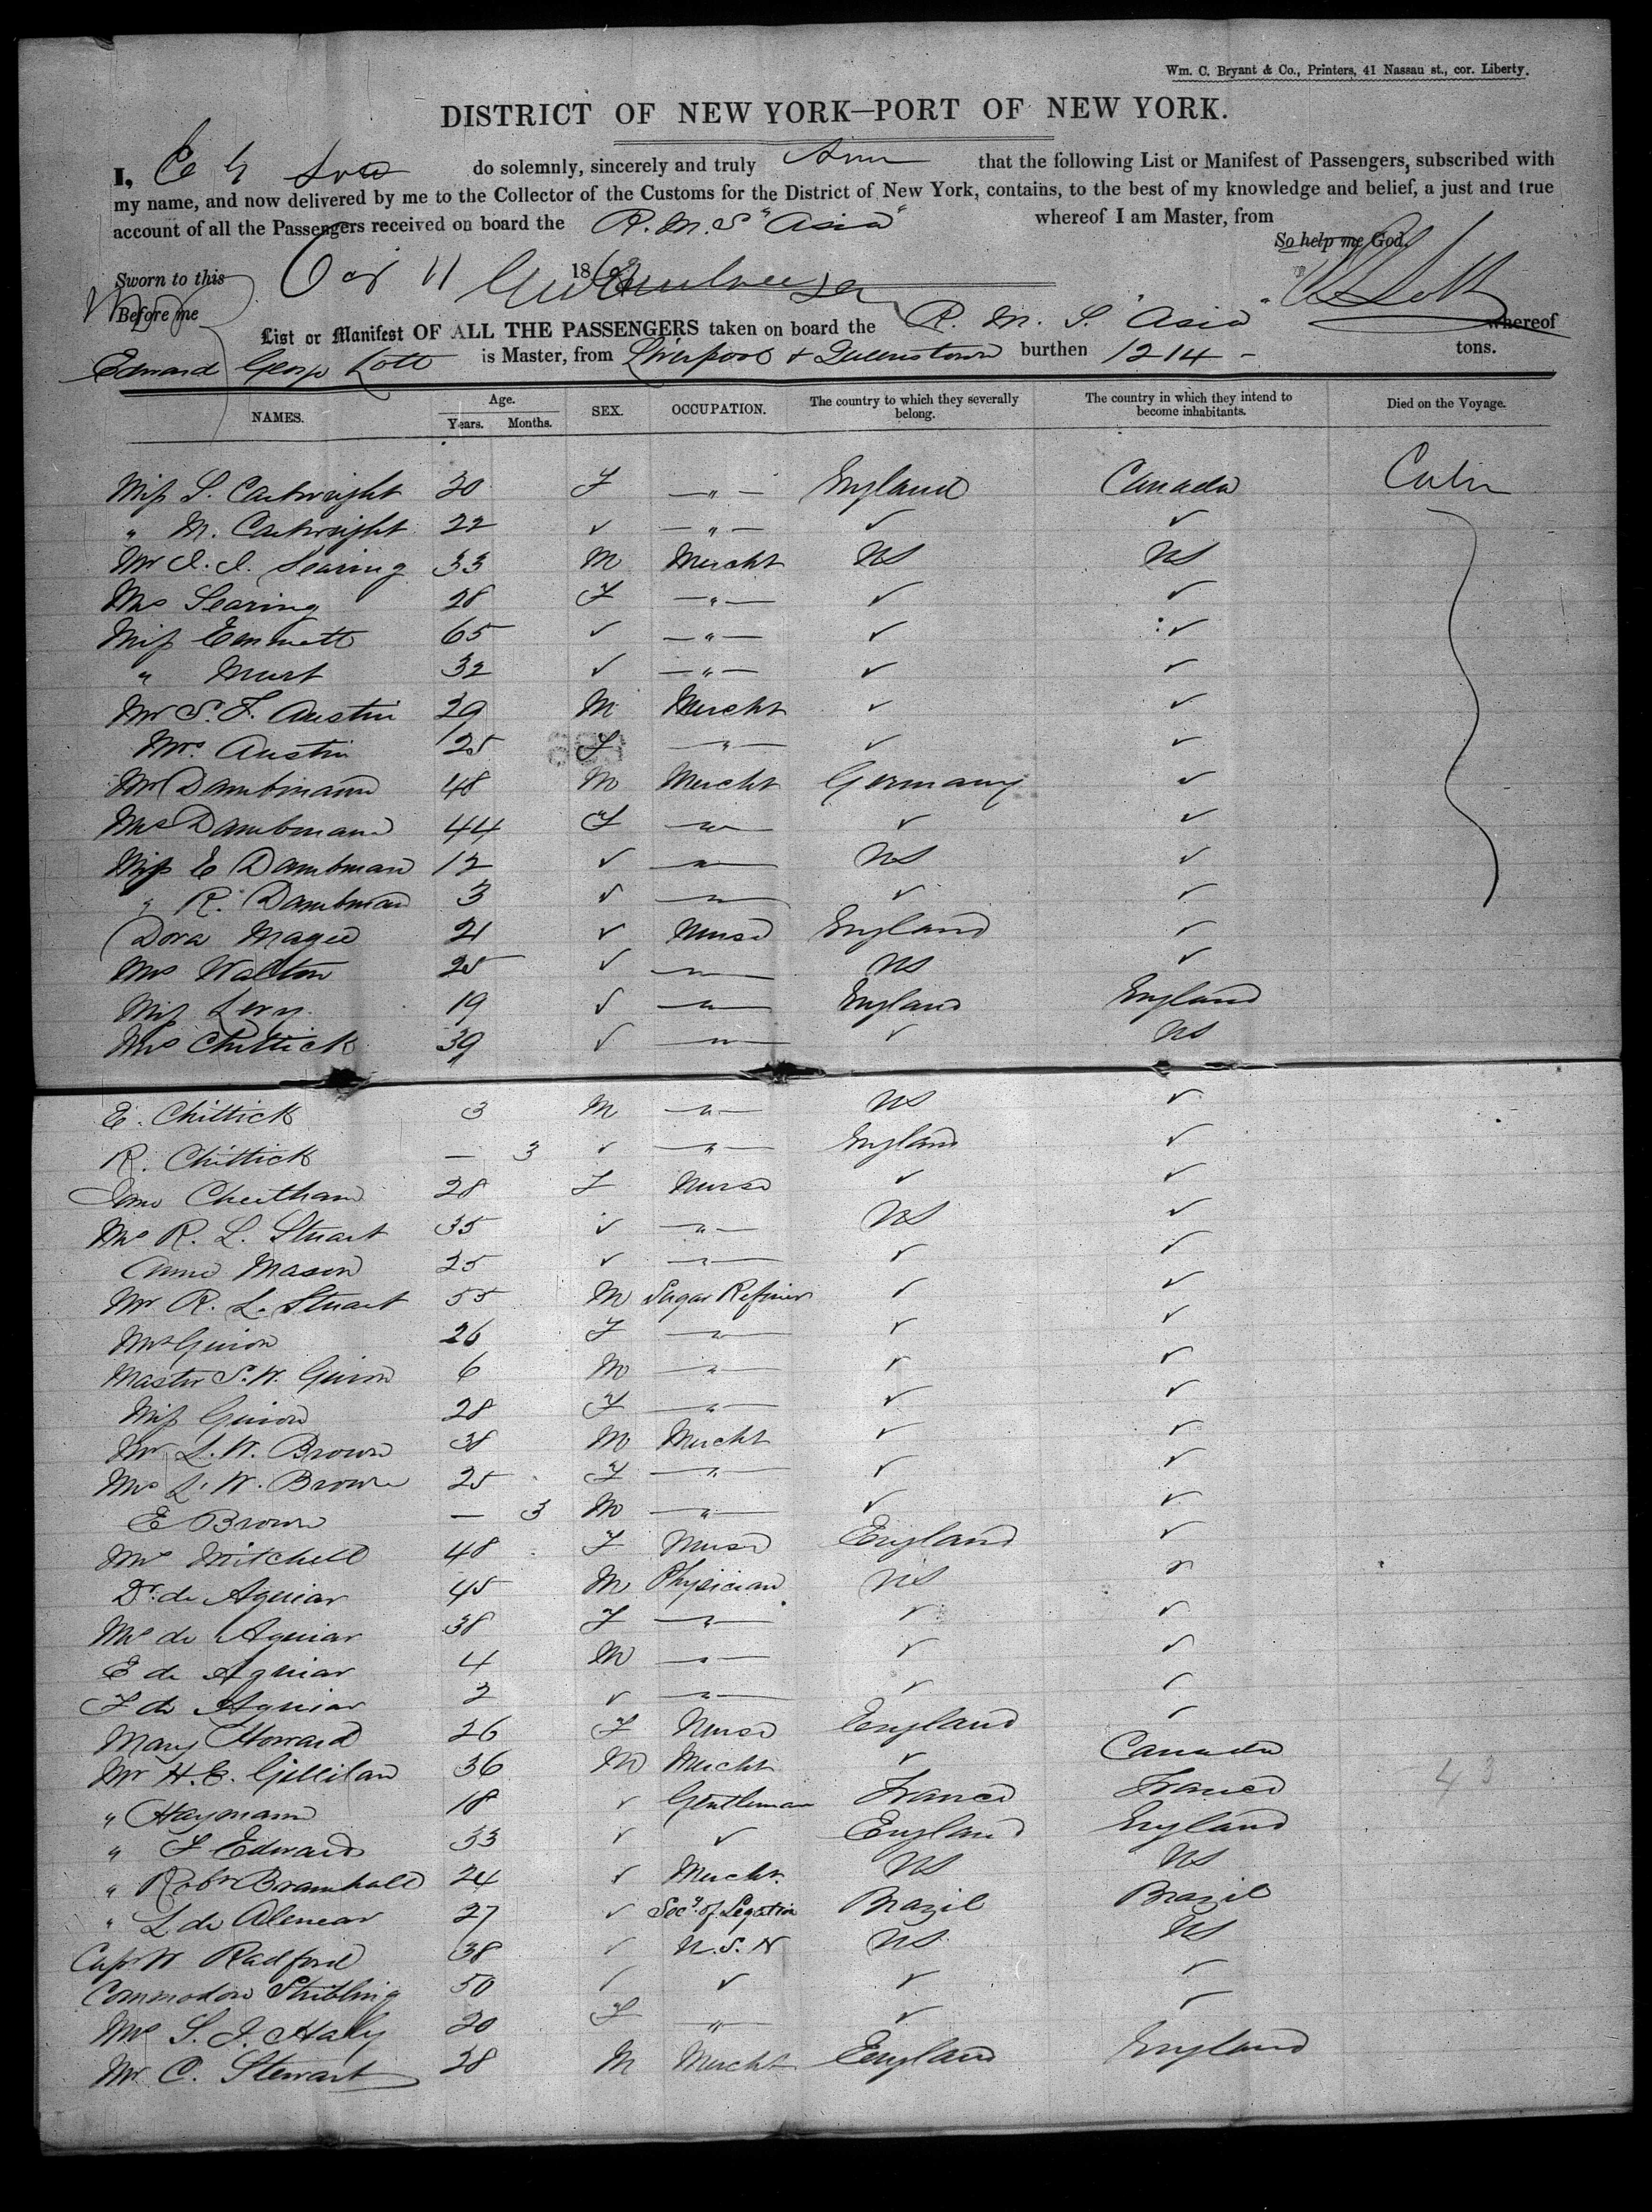 Wm. C. Bryant & Co., Printers, 41 Nassau st., cor. Liberty.
DISTRICT OF NEW YORK—PORT OF NEW YORK.
I, E G Lott do solemnly, sincerely and truly that the following List or Manifest of Passengers, subscribed with
my name, and now delivered by me to the Collector of the Customs for the District of New York, contains, to the best of my knowledge and belief, a just and true
account of all the Passengers received on board the R. M. S "Asia" whereof I am Master, from
So help me God.
Sworn to this 11 186
Before me
List or Manifest OF ALL THE PASSENGERS taken on board the R. M. S. "Asia" whereof
Edward George Lott is Master, from Liverpool & Queenstown burthen 1214 - tons.
NAMES. Age. Years. Months. SEX. OCCUPATION. The country to which they severally belong. The country in which they intend to become inhabitants. Died on the Voyage.
Miss S. Cartwright 20 F —"— England Canada
" M. Cartwright 22 ✓ —"— ✓ ✓
Mr I. I. Searing 33 M Mercht US US
Mrs Searing 28 F —"— ✓ ✓
Miss Emmett 65 ✓ —"— ✓ ✓
" 32 ✓ —"— ✓ ✓
Mr S. F. Austin 29 M Mercht ✓ ✓
Mrs Austin 25 F —"— ✓ ✓
Mr Dambmann 48 M Mercht Germany ✓
Mrs Dambmann 44 F —"— ✓ ✓
Miss E Dambman 12 ✓ —"— US ✓
" R. Dambman 3 ✓ —"— ✓ ✓
Dora Magee 21 ✓ Nurse England ✓
Mrs Walton 25 ✓ —"— US ✓
Miss Levy 19 ✓ —"— England England
Mrs Chittick 39 ✓ —"— ✓ US
E. Chittick 3 M —"— US ✓
R. Chittick — 3 ✓ —"— England ✓
Jane Cheetham 28 F Nurse ✓ ✓
Mrs R. L. Stuart 35 ✓ —"— US ✓
Anne Mason 25 ✓ —"— ✓ ✓
Mr R. L. Stuart 55 M Sugar Refiner ✓ ✓
Mrs Guion 26 F —"— ✓ ✓
Master S. W. Guion 6 M —"— ✓ ✓
Miss Guion 28 F —"— ✓ ✓
Mr L. W. Brown 38 M Mercht ✓ ✓
Mrs L. W. Brown 25 F —"— ✓ ✓
E Brown — 3 M —"— ✓ ✓
Mrs Mitchell 48 F Nurse England ✓
Dr. de Aguiar 45 M Physician US ✓
Mrs de Aguiar 38 F —"— ✓ ✓
E de Aguiar 4 M —"— ✓ ✓
F de Aguiar 2 ✓ —"— ✓ ✓
Mary Howard 26 F Nurse England ✓
Mr H. E. Gillilan 36 M Mercht ✓ Canada
43
" Haymann 18 ✓ Gentleman France France
" F Edwards 33 ✓ ✓ England England
" Robt Bramhall 24 ✓ Mercht. US US
" L de Alencar 27 ✓ Secy. of Legation Brazil Brazil
Capt W Radford 38 ✓ U.S.N US US
Commodore Stribling 50 ✓ ✓ ✓ ✓
Mrs S. J. Haly 20 F —"— ✓ ✓
Mr C. Stewart 28 M Mercht England England